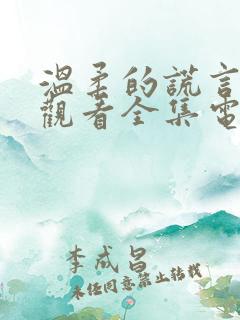 溫柔的謊言
觀看全集電
李成昌
未经同意禁止转载